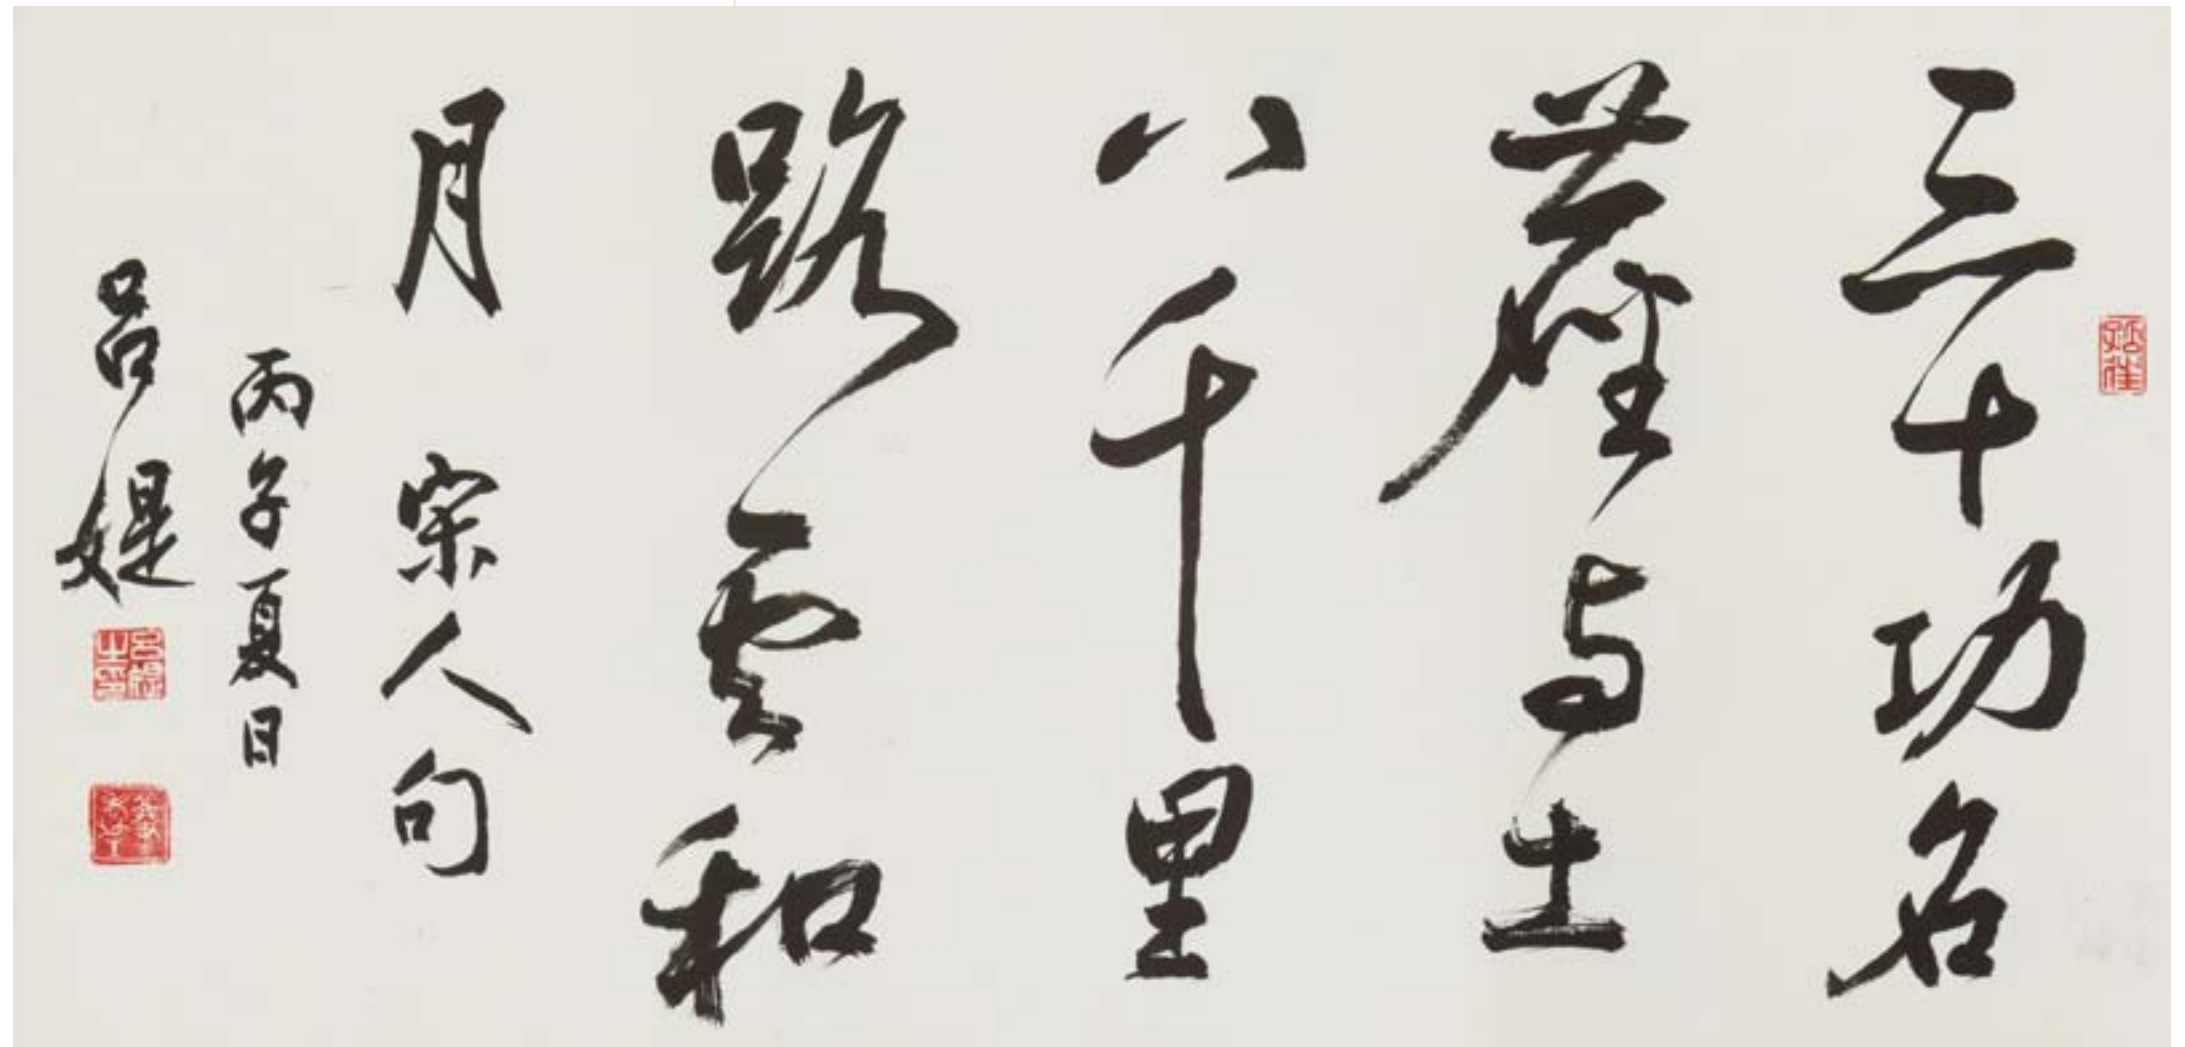 三十功名
塵与土
八千里
路雲和
月 宋人句
丙子夏日
吕媞
吕媞之印